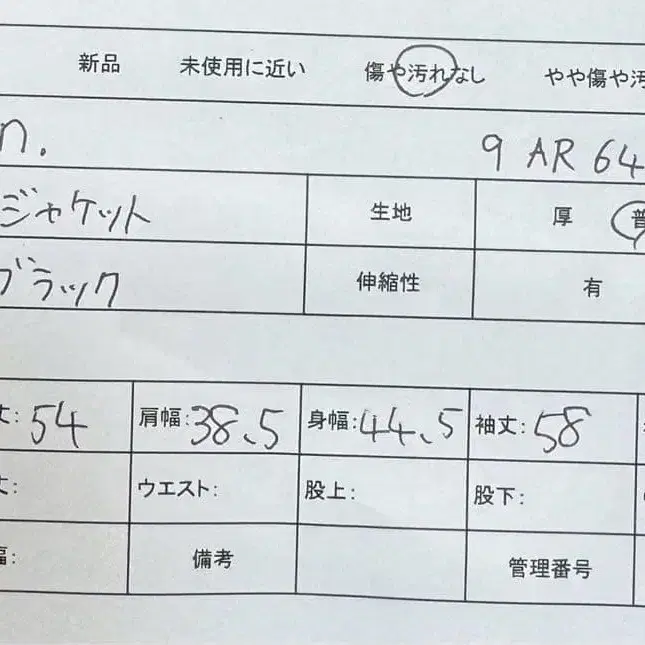 新品 未使用に近い 傷や汚れなし やや傷や汚
n. 9 AR 64
ジャケット 生地 厚 普
ブラック 伸縮性 有
丈: 54 肩幅: 38.5 身幅: 44.5 袖丈: 58
丈: ウエスト: 股上: 股下:
幅: 備考 管理番号